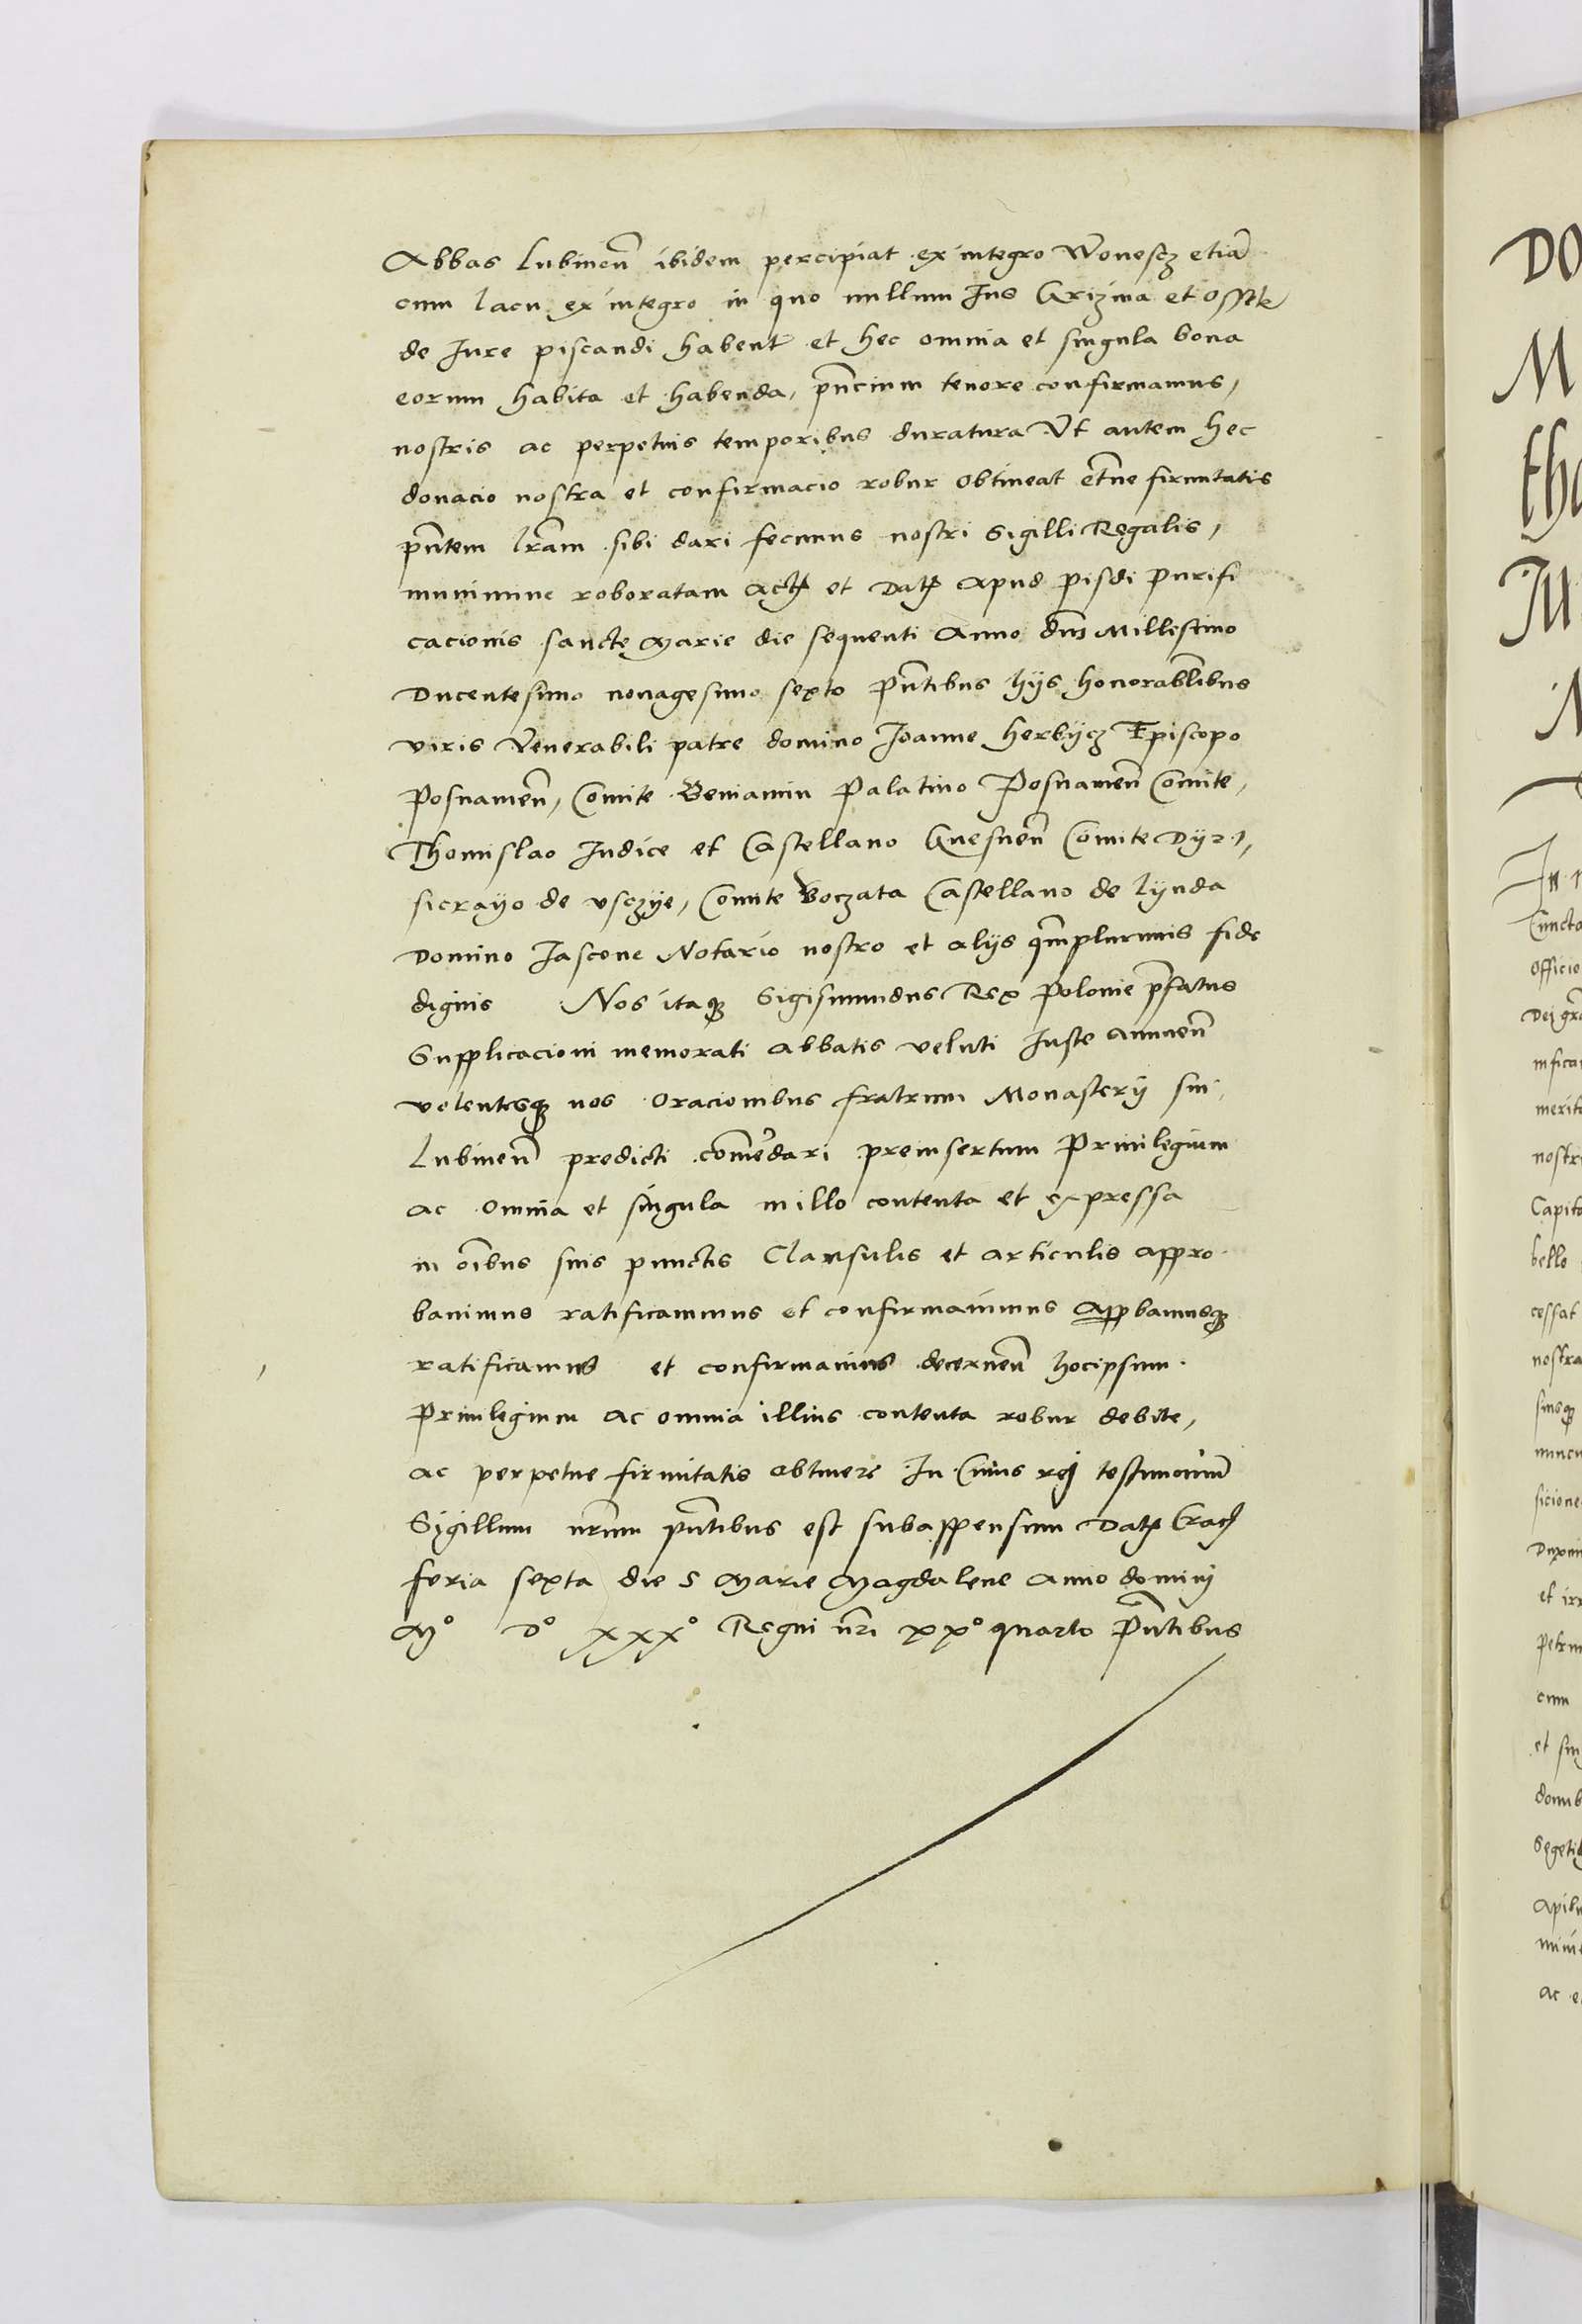 Abbas Lubineñ ibidem percipiat ex integro Wonescz etiã
cum lacu ex integro in quo nullum Ius Grizina et
de Iure piscandi habent et hec omnia et singula bona
eorum habita et habenda, pñcium tenore confirmamus,
nostris ac perpetuis temporibus duratura Ut autem hec
donacio nostra et confirmacio robur obtineat et̃ne firmitatis
pñtem lr̃am sibi dari fecimus nostri Sigilli Regalis,
munimine roboratam Act̃ et Dat̃ Apud pisdri Purifi
cacionis sancte Marie die sequenti Anno dñi Millesimo
Ducentesimo nonagesimo sexto Pñtibus hijs honorabilibus
viris Venerabili patre domino Joanne herbijcz Episcopo
Posnameñ, Comite Beniamin Palatino Posnameñ Comite,
Thomislao Iudice et Castellano Gnesneñ Comite Dyr,
sicrayo de vsczye, Comite Boczata Castellano de lijnda
Domino Jascone Notario nostro et alijs q̃mplurimis fide
dignis Nos itaq̃ Sigismundus Rex Polonie p̃fatus
Supplicacioni memorati Abbatis veluti Iuste annueñ
volentesq̃ nos oracionibus fratrum Monasterij sui
Lubineñ predicti com̃edari preinsertum Priuilegium
ac omnia et singula in illo contenta et expressa
in oĩbus suis punctis Clausulis et articulis appro
bauimus ratificauimus et confirmauimus appbamusq̃
ratificamus et confirmamus decerneñ hocipsum
Priuilegium ac omnia illius contenta robur debite,
ac perpetue firmitatis obtinere In Cuius rej testimoniũ
Sigillum nr̃um pñtibus est subappensum Dat̃ Crac̃
feria sexta die S Marie Magdalene Anno dominj
Mº Dº xxxº Regni nr̃i xxº quarto Pñtibus
DO
M
tho
In
Cuncta
officio
Dej gr̃a
merito
nostr
Capit
bello
cessat
nostra
suisq̃
sicione
et irr
petrum
cum
et sing
Segeti
ac e